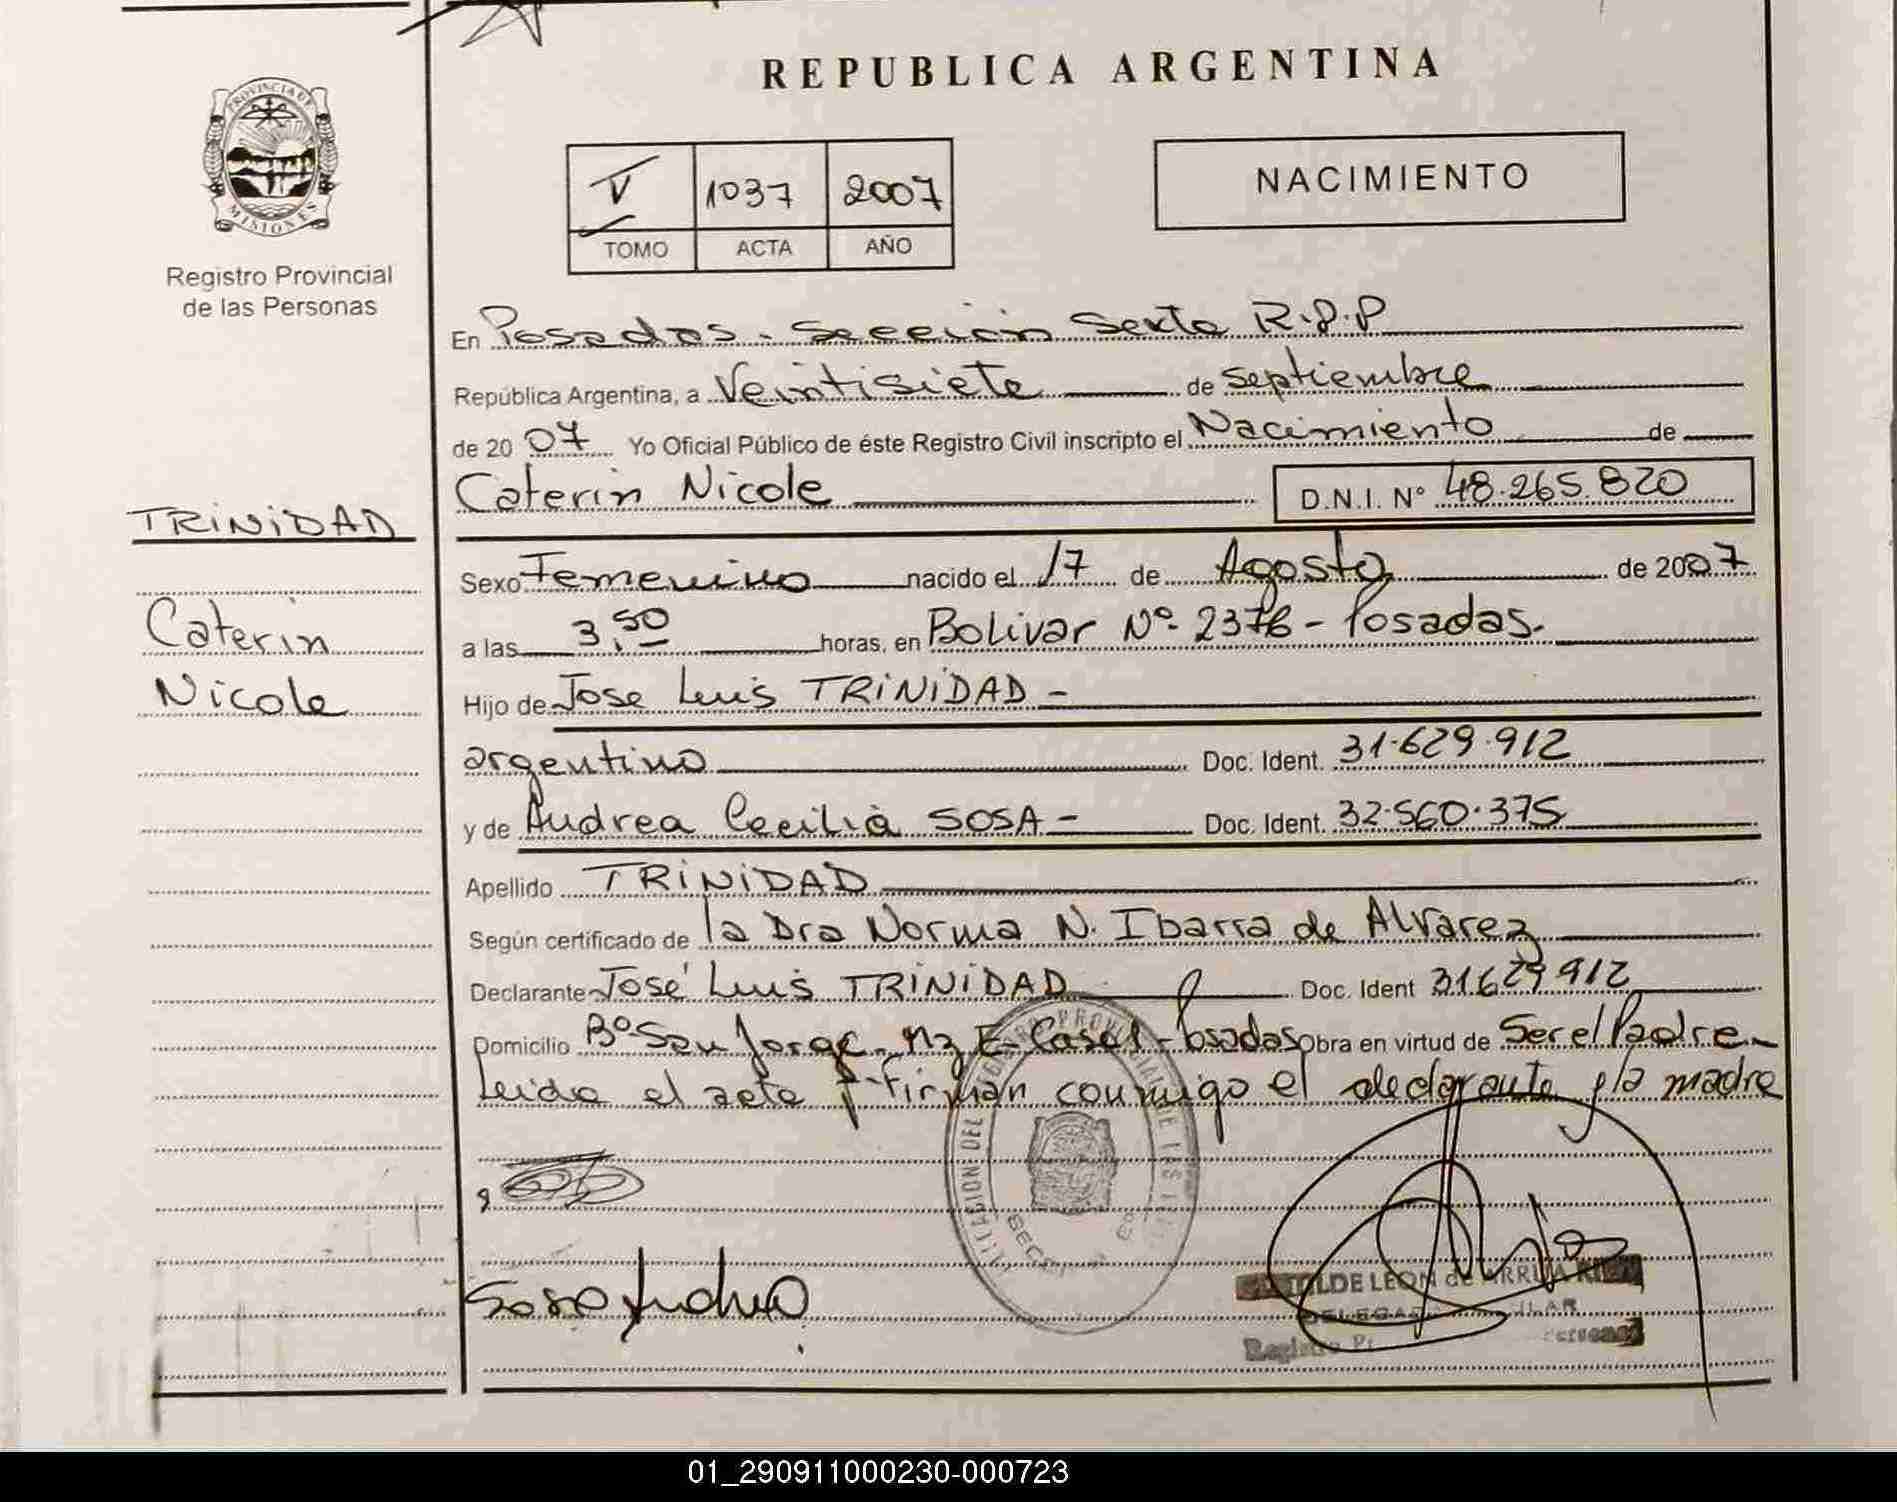 REPUBLICA ARGENTINA
PROVINCIA DE
MISIONES
Registro Provincial
de las Personas
V 1037 2007
TOMO ACTA AÑO
NACIMIENTO
En Posadas - Sección Sexta R.P.P
República Argentina, a Veintisiete de septiembre
de 20 07 Yo Oficial Público de éste Registro Civil inscripto el Nacimiento de
Caterin Nicole D.N.I. Nº 48.265.820
TRINIDAD
Caterin
Nicole
Sexo Femenino nacido el 17 de Agosto de 2007
a las 3,50 horas, en Bolivar Nº 2376 - Posadas.
Hijo de Jose Luis TRINIDAD -
argentino Doc. Ident. 31.629.912
y de Andrea Cecilia SOSA - Doc. Ident. 32.560.375
Apellido TRINIDAD
Según certificado de la Dra Norma N. Ibarra de Alvarez
Declarante José Luis TRINIDAD Doc. Ident 31629912
Domicilio Bº San Jorge - Mz E - Casa 1 - Posadas Obra en virtud de Ser el Padre -
Leida el acta y Firman conmigo el declarante y la madre
Sosa Andrea
DE LEON de ARRUA
Registro
01_290911000230-000723